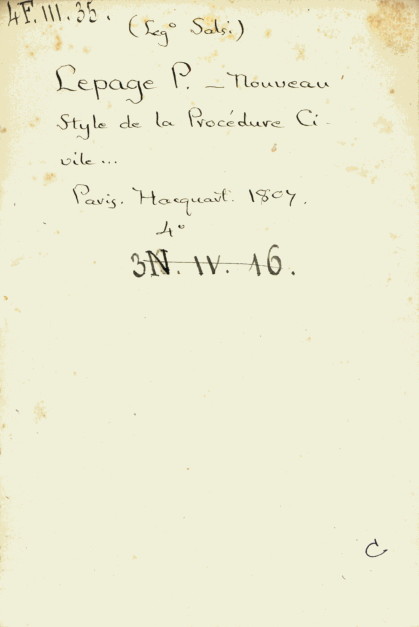 4F.III.35.
(Leg° Sals.)
Lepage P. — Nouveau
Style de la Procédure Ci-
vile...
Paris. Hacquart. 1807.
4°
3N. IV. 16.
C